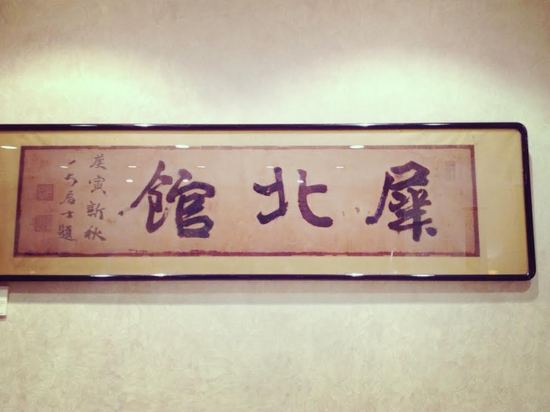 犀北館
庚寅新秋
一六居士題